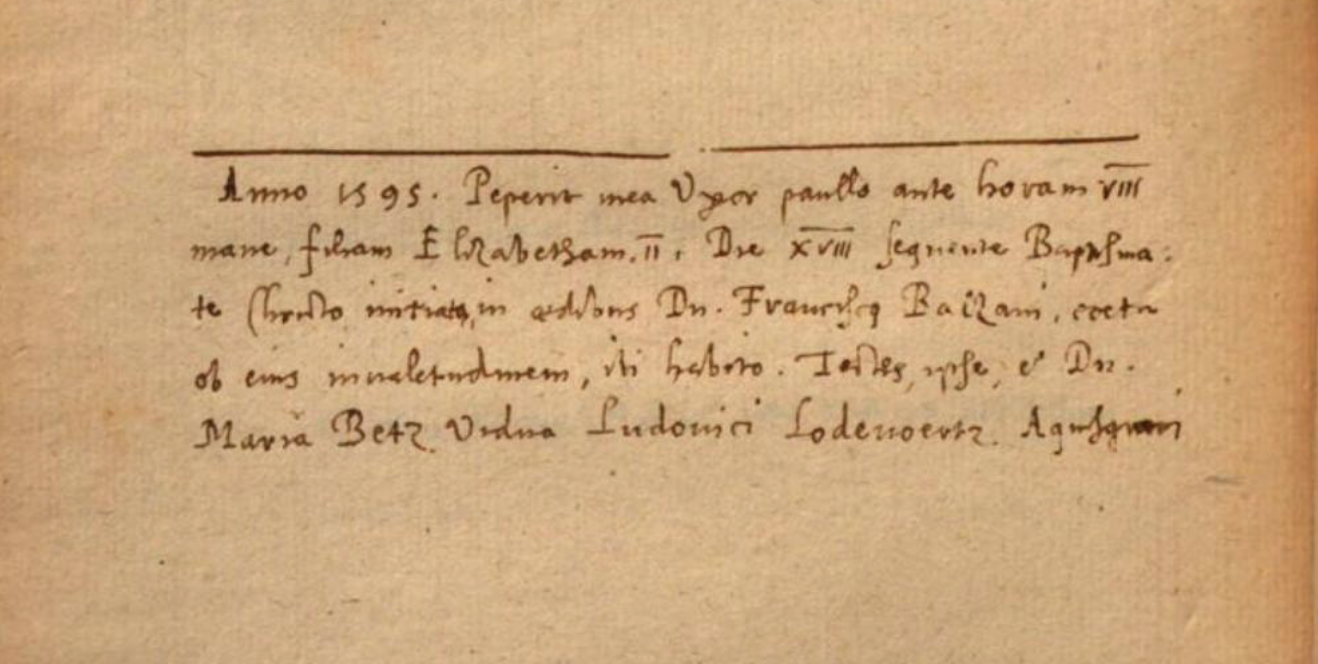 Anno 1595. Peperit mea Vxor paullo ante horam VIII
mane, filiam Elizabetham. II. Die XVIII sequente Baptisma:
te Christo initiata, in ædibus Dn. Francisci Balzani, coetu
ob eius inualetudinem, ibi habito. Testes, ipse, et Dn.
Maria Betz Vidua Ludouici Lodeuoertz. Aquisgrani